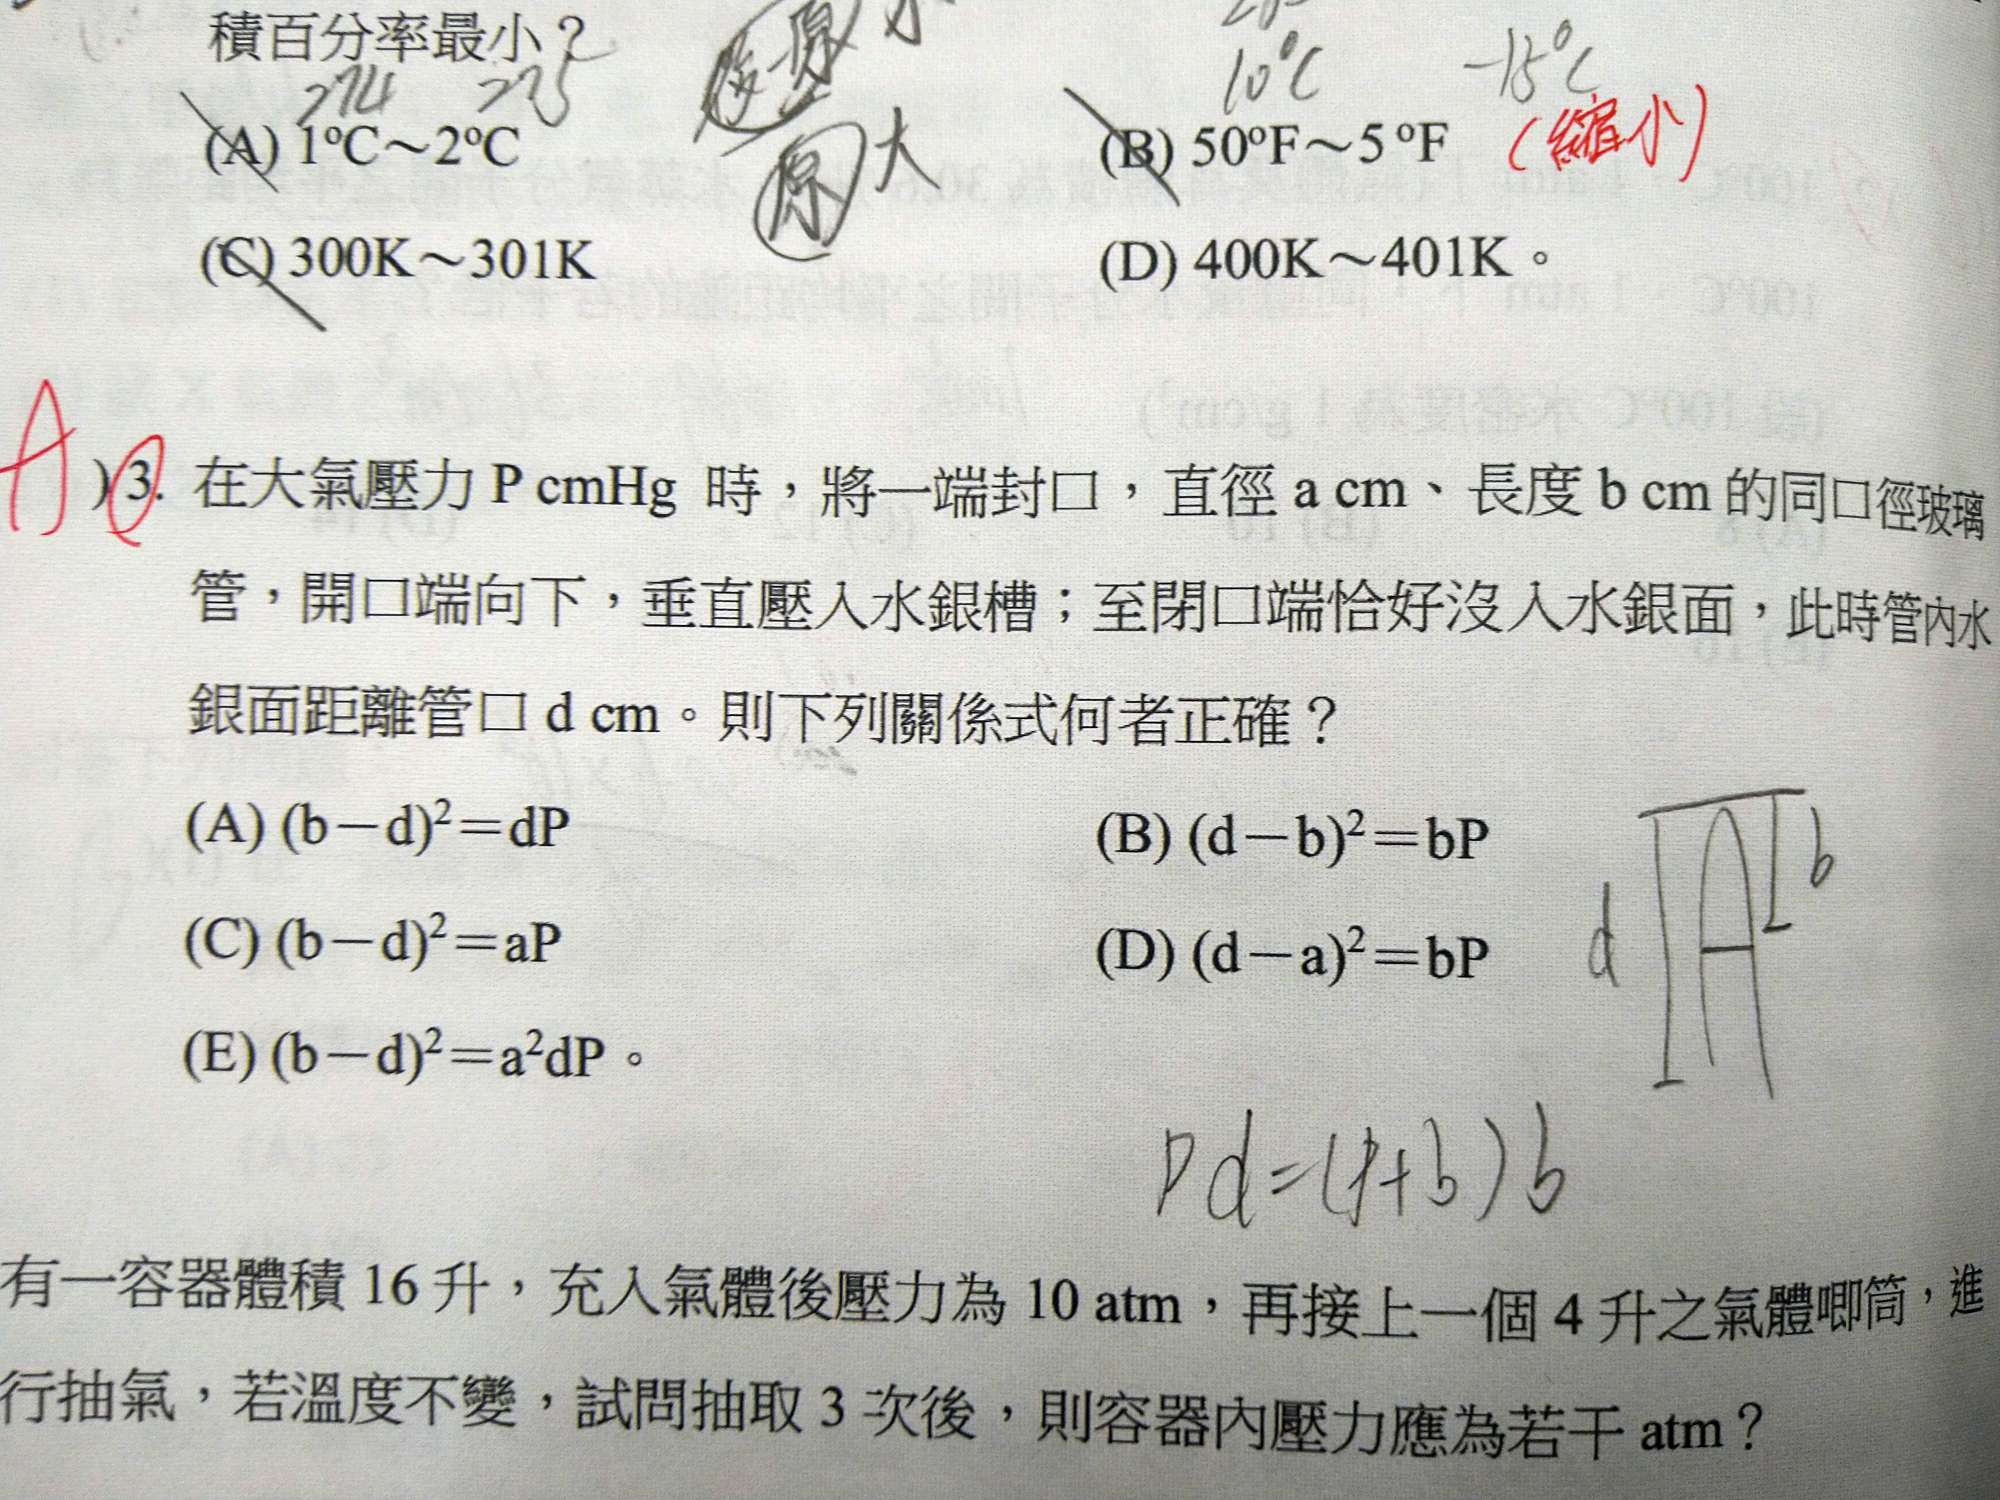 積百分率最小？
274 275
10°C -15°C
(A) 1ºC～2ºC
原 大
(B) 50ºF～5ºF (縮小)
(C) 300K～301K
(D) 400K～401K。
A )3. 在大氣壓力 P cmHg 時，將一端封口，直徑 a cm、長度 b cm 的同口徑玻璃
管，開口端向下，垂直壓入水銀槽；至閉口端恰好沒入水銀面，此時管內水
銀面距離管口 d cm。則下列關係式何者正確？
(A) (b－d)²＝dP
(B) (d－b)²＝bP
b
(C) (b－d)²＝aP
(D) (d－a)²＝bP
d
(E) (b－d)²＝a²dP。
Pd=(P+b)b
有一容器體積 16 升，充入氣體後壓力為 10 atm，再接上一個 4 升之氣體唧筒，進
行抽氣，若溫度不變，試問抽取 3 次後，則容器內壓力應為若干 atm？